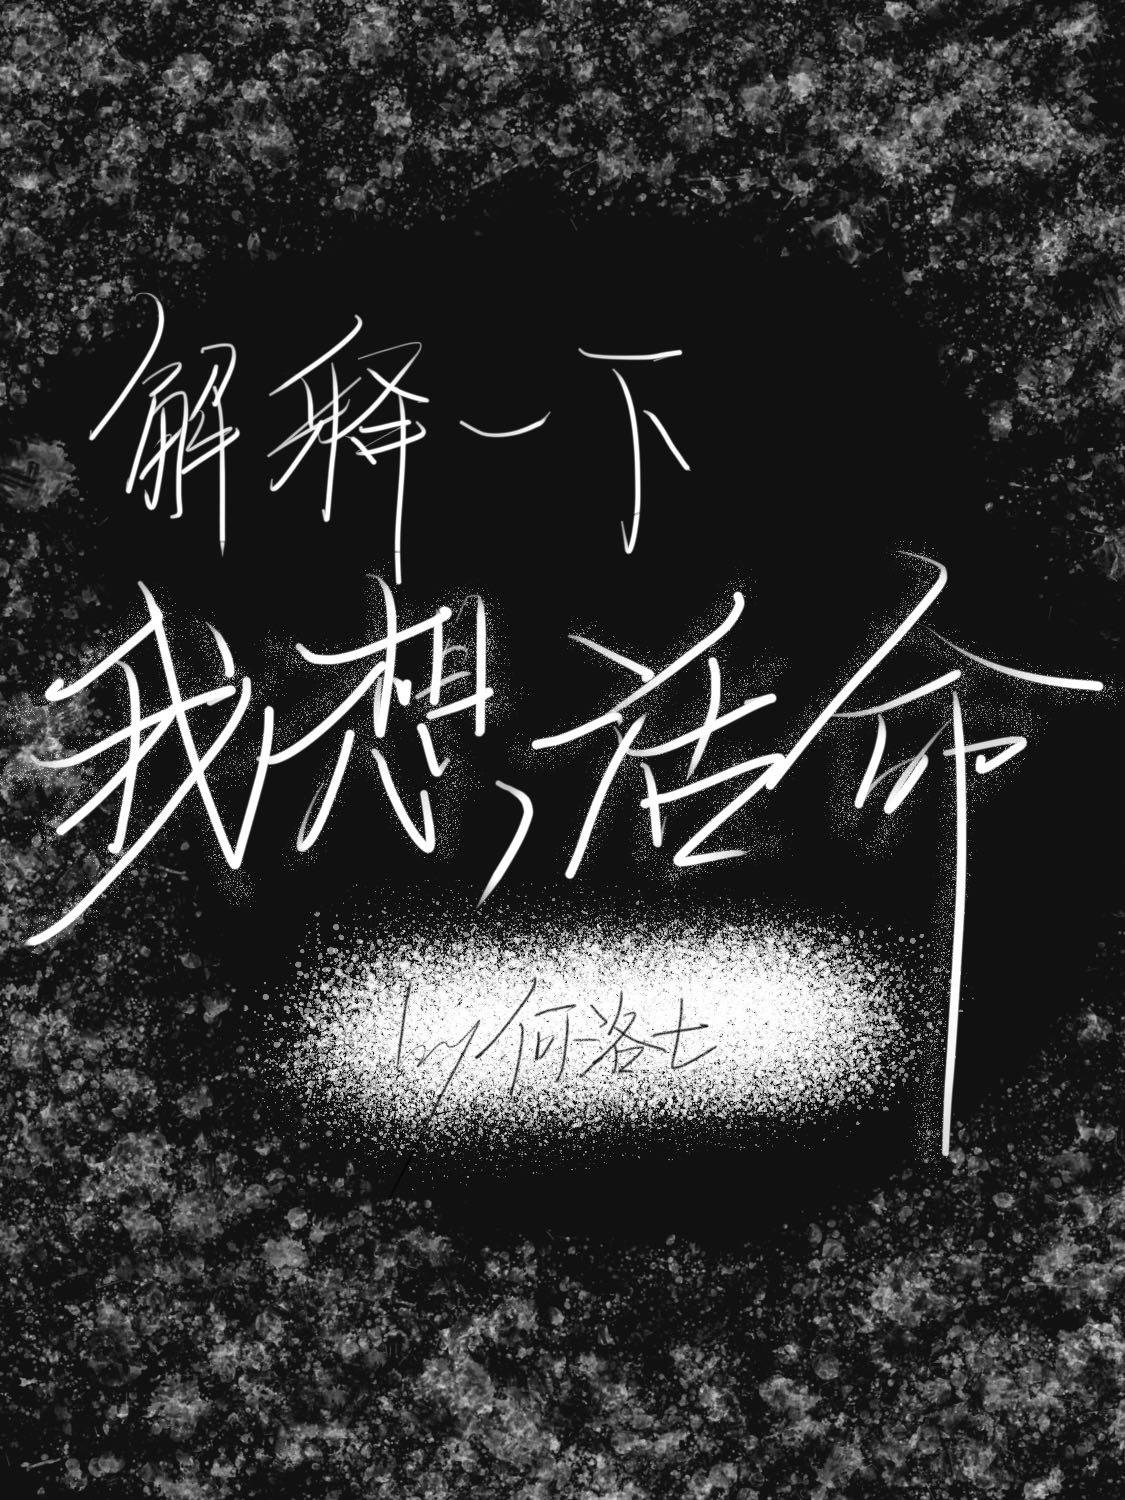 解释一下
我想，活命
by 何洛七